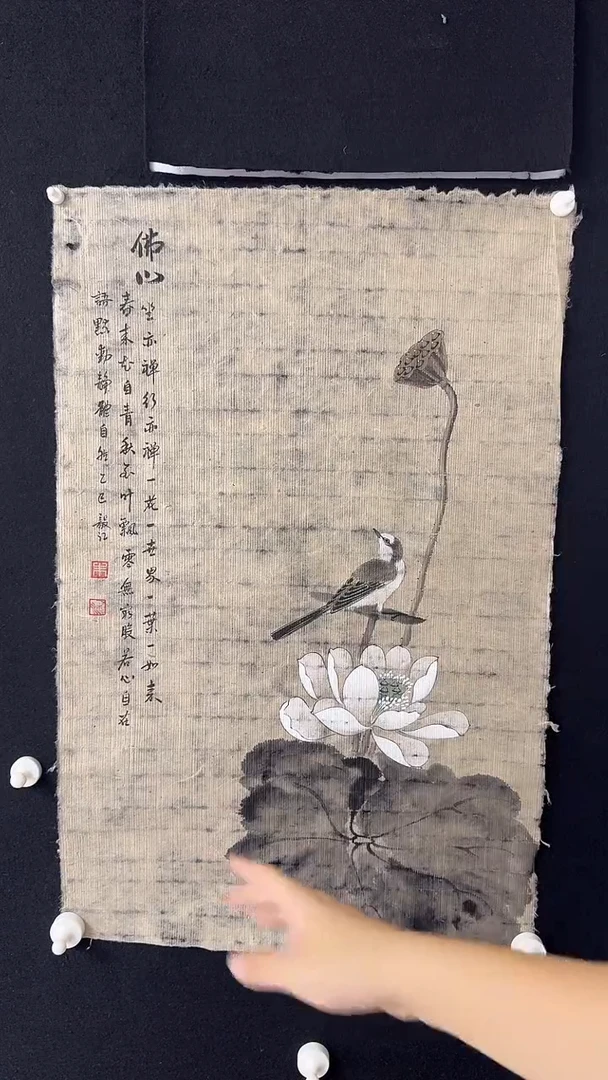 佛心
坐亦禅行亦禅一花一世界一叶一如来
春来花自青秋至叶飘零無穷般若心自在
語默動静體自然乙巳毅江